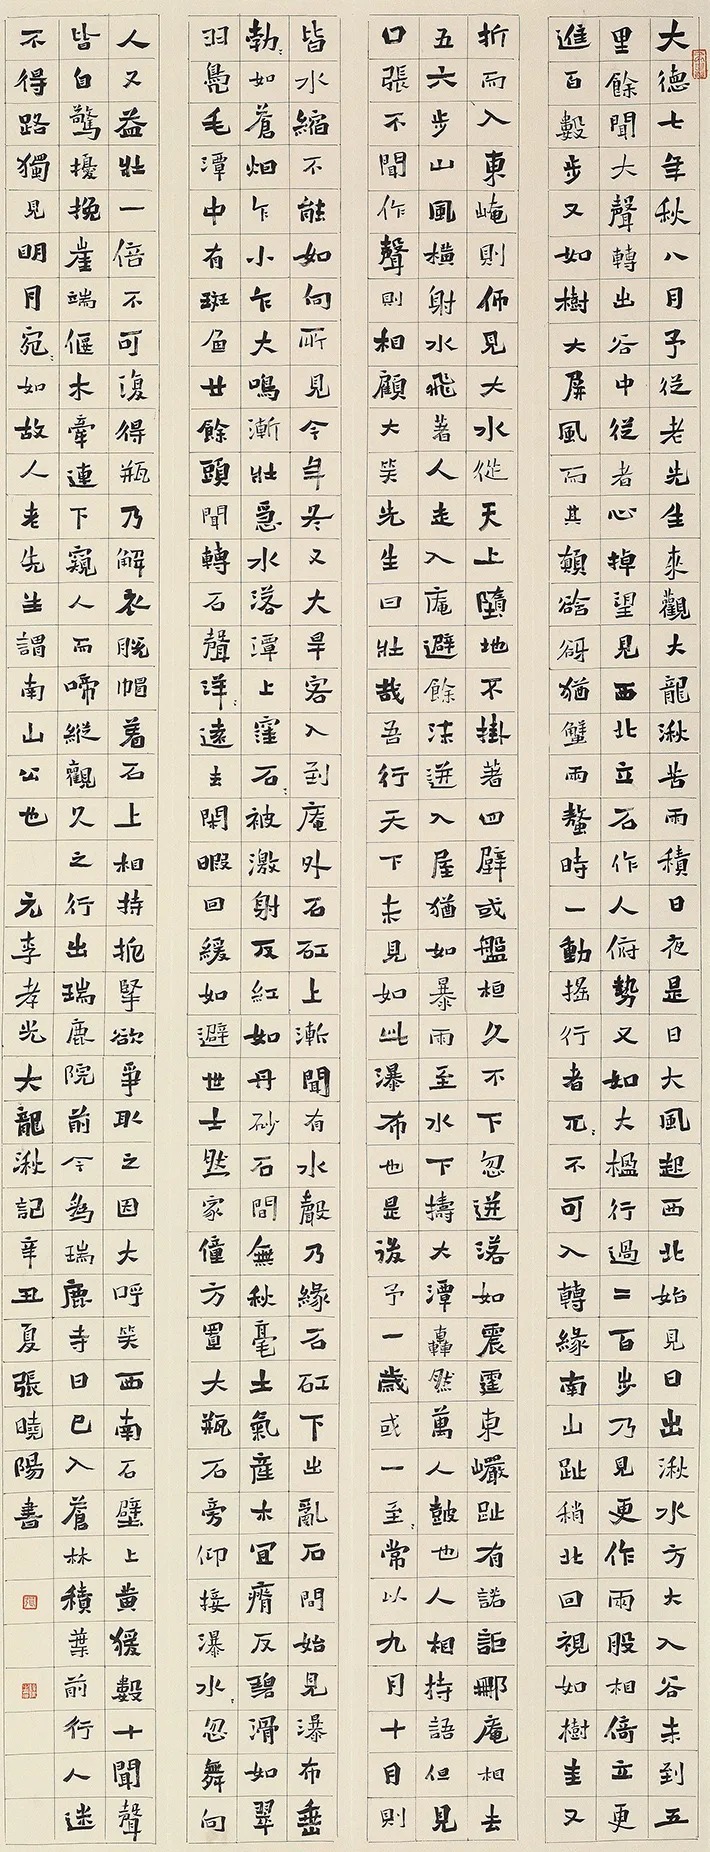 大德七年秋八月予從老先生來觀大龍湫苦雨積日夜是日大風起西北始見日出湫水方大入谷未到五
里餘聞大聲轉出谷中從者心掉望見西北立石作人俯勢又如大楹行過二百步乃見更作兩股相倚立更
進百數步又如樹大屏風而其顛谽谺猶蟹兩螯時一動搖行者兀〻不可入轉緣南山趾稍北回視如樹圭又
折而入東崦則仰見大水從天上墮地不掛著四壁或盤桓久不下忽迸落如震霆東巖趾有諾詎那庵相去
五六步山風橫射水飛著人走入庵避餘沫迸入屋猶如暴雨至水下擣大潭轟然萬人鼓也人相持語但見
口張不聞作聲則相顧大笑先生曰壯哉吾行天下未見如此瀑布也是後予一歲或一至〻常以九月十月則
皆水縮不能如向所見今年冬又大旱客入到庵外石矼上漸聞有水聲乃緣石矼下出亂石間始見瀑布垂
勃〻如蒼烟乍小乍大鳴漸壯急水落潭上窪石〻被激射反紅如丹砂石間無秋毫土氣產木宜瘠反碧滑如翠
羽鳧毛潭中有斑魚廿餘頭聞轉石聲洋〻遠去閑暇回緩如避世士然家僮方置大瓶石旁仰接瀑水〻忽舞向
人又益壯一倍不可復得瓶乃解衣脫帽着石上相持扼掔欲爭取之因大呼笑西南石壁上黃猿數十聞聲
皆自驚擾挽崖端偃木牽連下窺人而啼縱觀久之行出瑞鹿院前今為瑞鹿寺日已入蒼林積葉前行人迷
不得路獨見明月宛〻如故人老先生謂南山公也 元李孝光大龍湫記辛丑夏張曉陽書